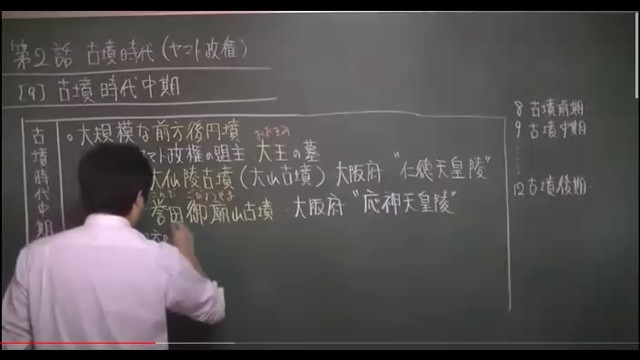 第2話 古墳時代(ヤマト政権)
[9] 古墳時代中期
古墳時代中期
○大規模な前方後円墳
マト政権の盟主 大王の墓
おおきみ
大仙陵古墳(大山古墳) 大阪府 "仁徳天皇陵"
誉田御廟山古墳 大阪府 "応神天皇陵"
8 古墳前期
9 古墳中期
12 古墳後期